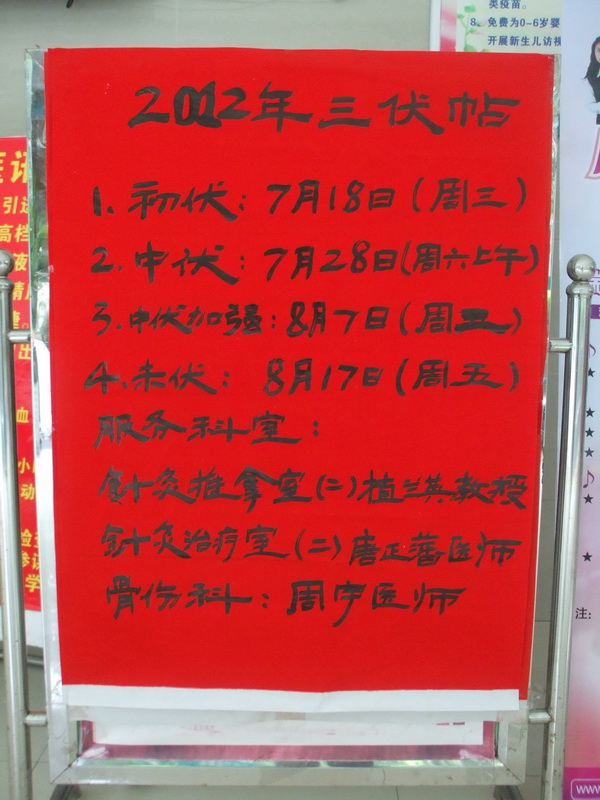 2012年三伏帖
1. 初伏：7月18日（周三）
2. 中伏：7月28日（周六上午）
3. 中伏加强：8月7日（周二）
4. 末伏：8月17日（周五）
服务科室：
针灸推拿室（二）植兰英教授
针灸治疗室（二）唐正蕃医师
骨伤科：周宁医师
类疫苗。
8、免费为0-6岁婴
开展新生儿访视
高档
液
出
血
动
学
注:
www